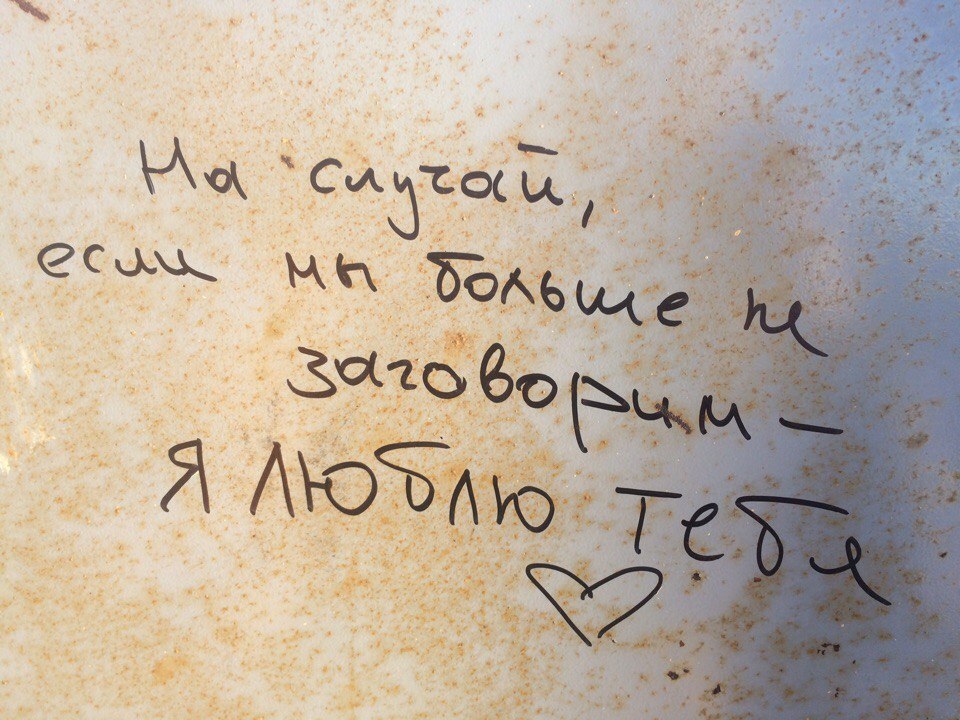 На случай,
если мы больше не
заговорим –
Я люблю тебя